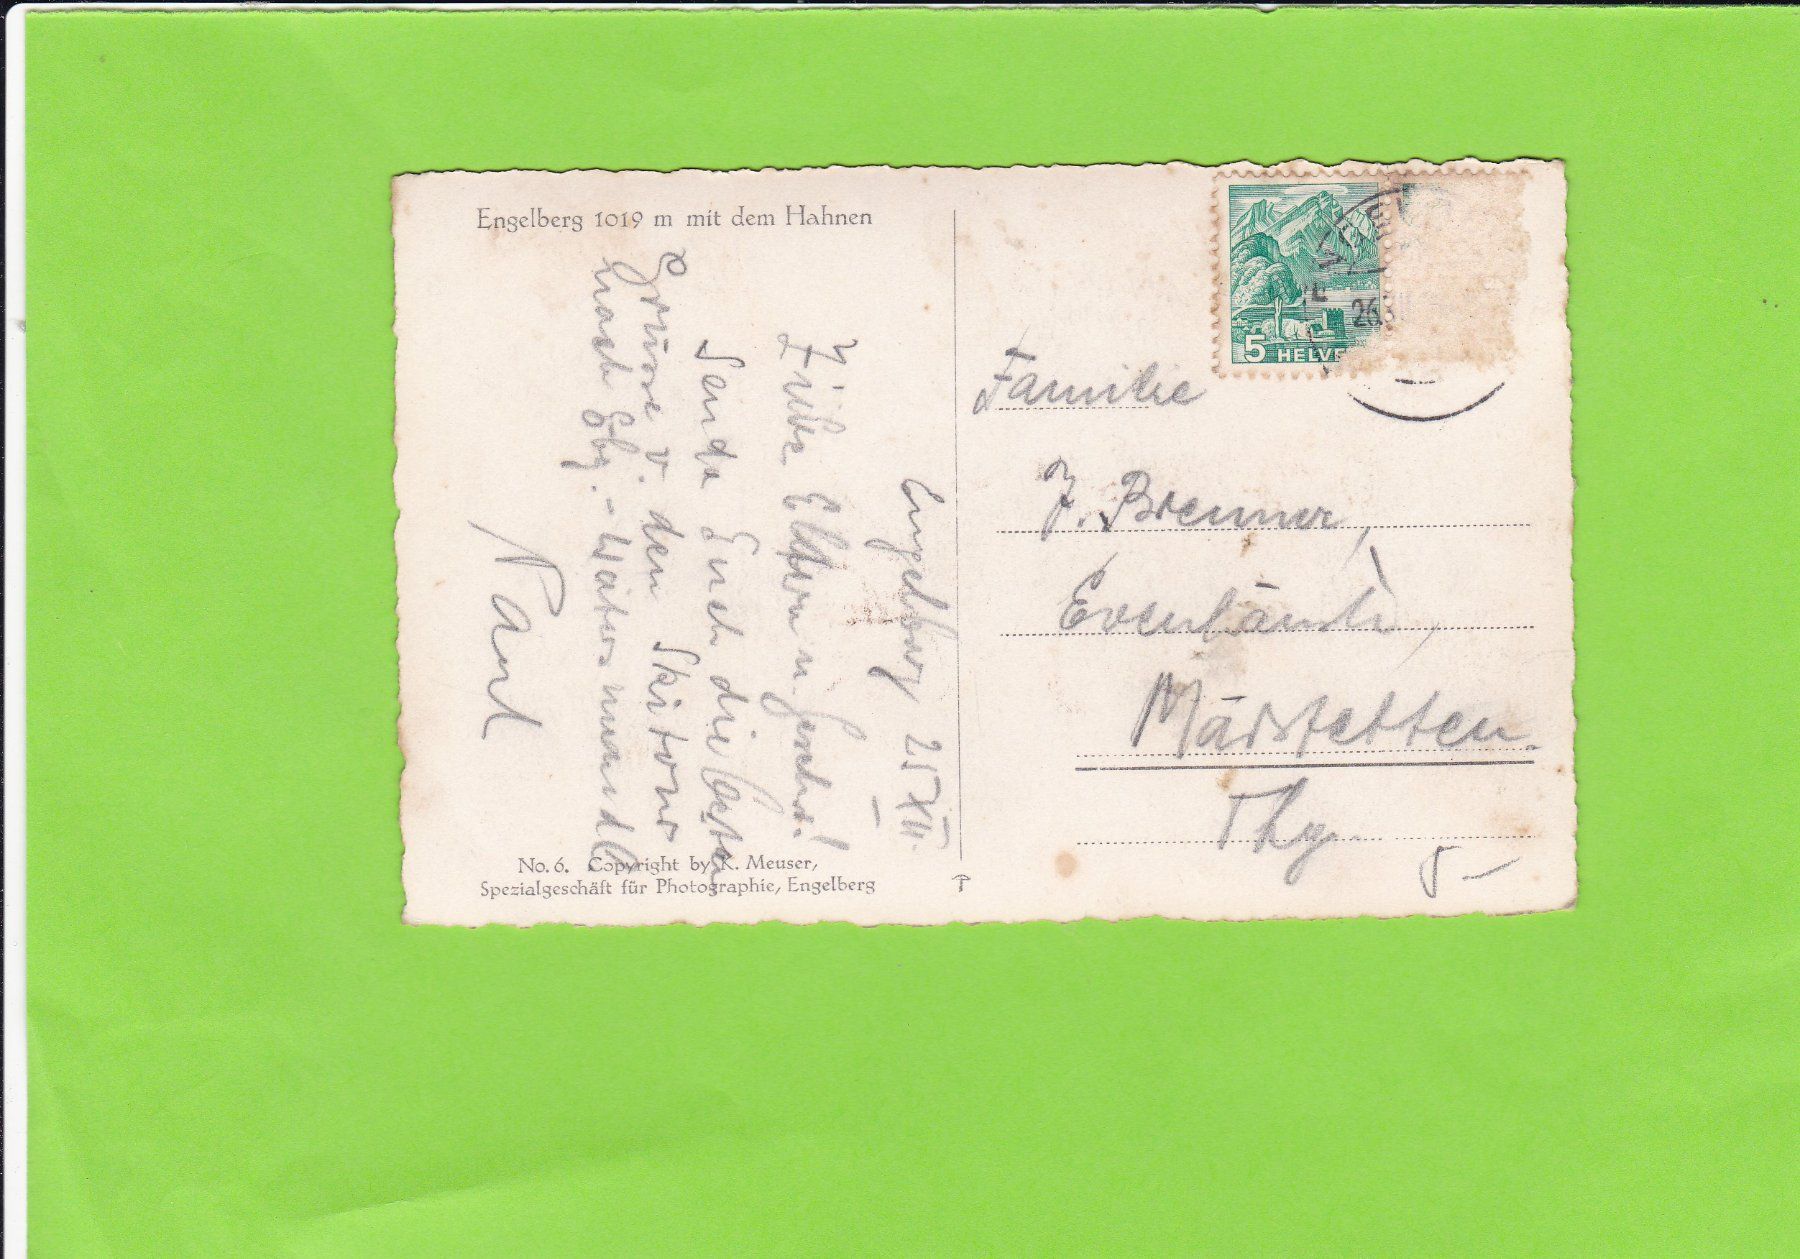 Engelberg 1019 m mit dem Hahnen
Engelberg 25. XII.
Liebe Eltern u. Geschw.!
Sende Euch die besten
Grüsse v. den Skitour
nach Ebg. - Wasserwendi
Paul
No. 6. Copyright by K. Meuser,
Spezialgeschäft für Photographie, Engelberg
5 HELVE
26.
Familie
J. Brenner,
Märstetten.
Thg.
5 -